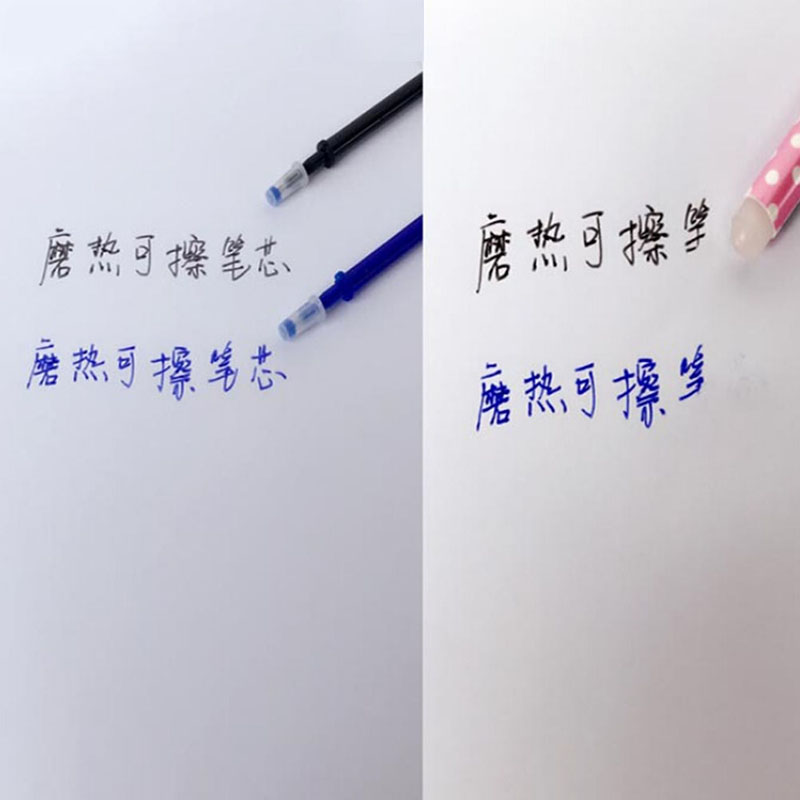 磨热可擦笔芯
磨热可擦笔芯
磨热可擦
磨热可擦